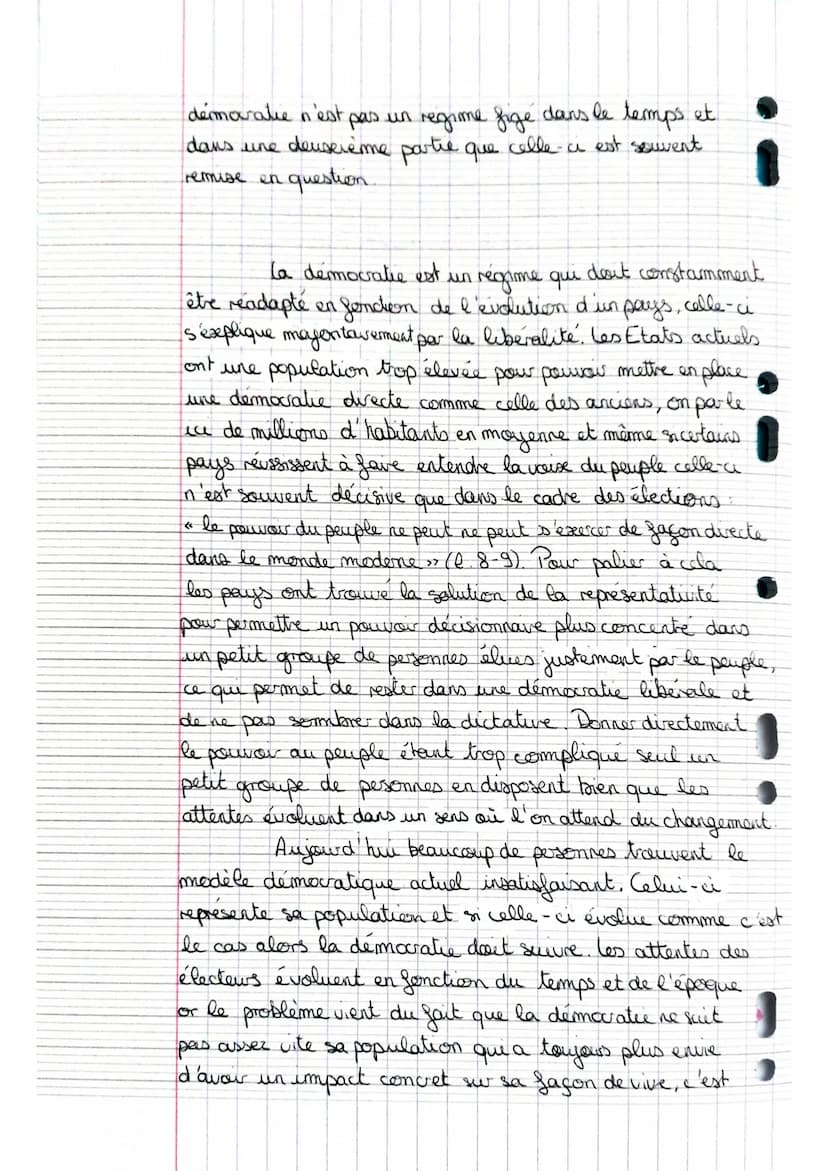 démocratie n'est pas un régime figé dans le temps et
dans une deuxième partie que celle-ci est souvent
remise en question.
La démocratie est un régime qui doit constamment
être réadapté en fonction de l'évolution d'un pays, celle-ci
s'explique majoritairement par la libéralité. Les Etats actuels
ont une population trop élevée pour pouvoir mettre en place
une démocratie directe comme celle des anciens, on parle
ici de millions d'habitants en moyenne et même si certains
pays réussissent à faire entendre la voix du peuple celle-ci
n'est souvent décisive que dans le cadre des élections :
« le pouvoir du peuple ne peut ne peut s'exercer de façon directe
dans le monde moderne » (l. 8-9). Pour palier à cela
les pays ont trouvé la solution de la représentativité
pour permettre un pouvoir décisionnaire plus concentré dans
un petit groupe de personnes élues justement par le peuple,
ce qui permet de rester dans une démocratie libérale et
de ne pas sombrer dans la dictature. Donner directement
le pouvoir au peuple étant trop compliqué seul un
petit groupe de personnes en disposent bien que les
attentes évoluent dans un sens où l'on attend du changement.
Aujourd'hui beaucoup de personnes trouvent le
modèle démocratique actuel insatisfaisant. Celui-ci
représente sa population et si celle-ci évolue comme c'est
le cas alors la démocratie doit suivre. Les attentes des
électeurs évoluent en fonction du temps et de l'époque
or le problème vient du fait que la démocratie ne suit
pas assez vite sa population qui a toujours plus envie
d'avoir un impact concret sur sa façon de vivre, c'est